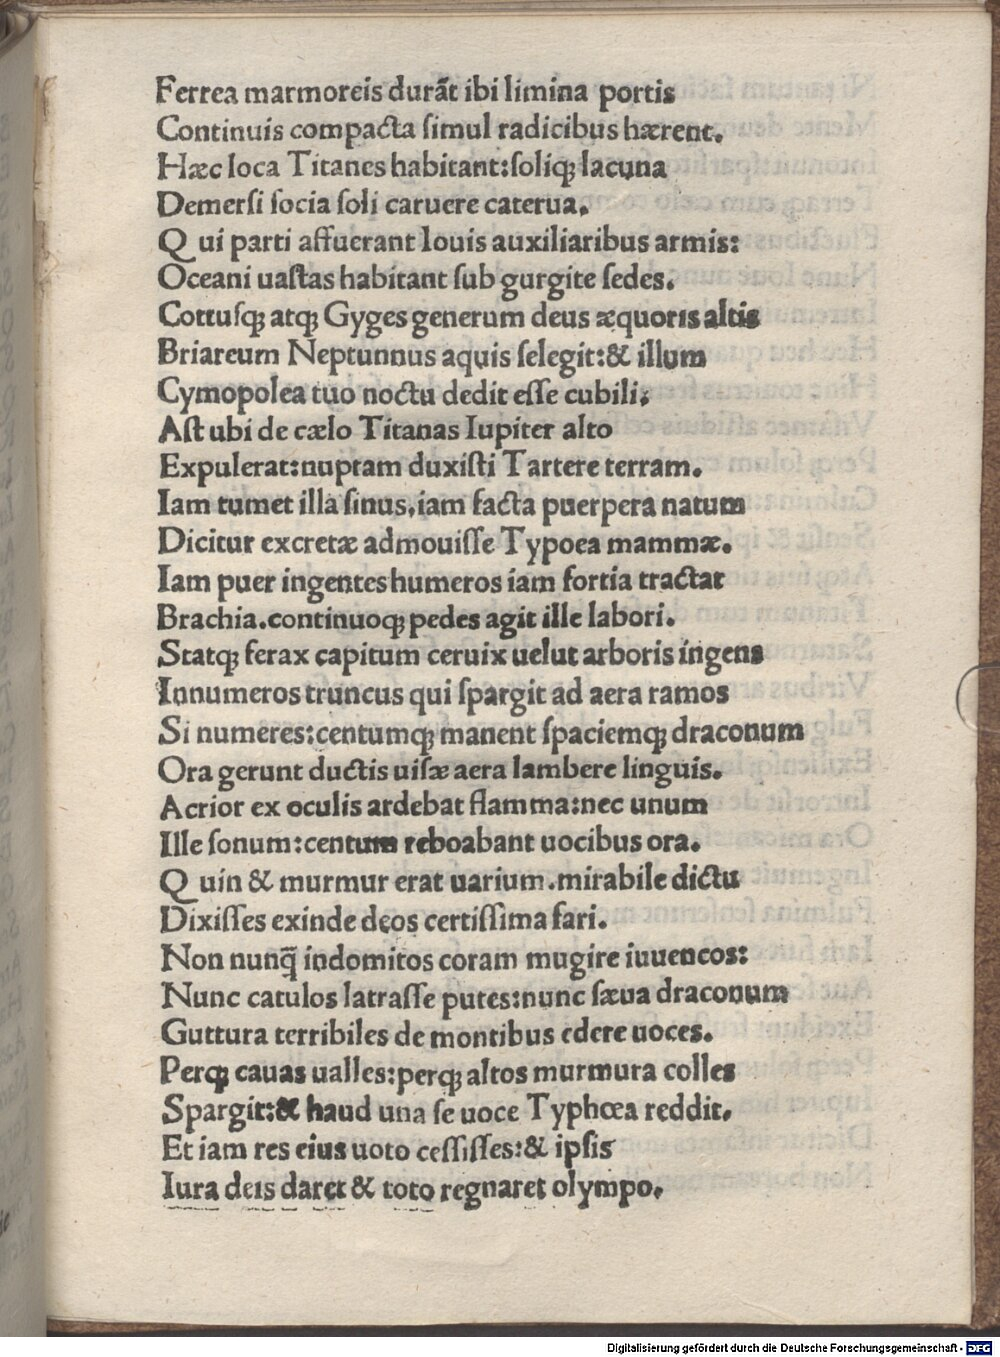 Ferrea marmoreis durãt ibi limina portis
Continuis compacta ſimul radicibus hærent.
Hæc loca Titanes habitant:ſoliqꝫ lacuna
Demerſi ſocia ſoli caruere caterua.
Q ui parti affuerant Iouis auxiliaribus armis:
Oceani uaſtas habitant ſub gurgite ſedes.
Cottuſqꝫ atqꝫ Gyges generum deus æquoris altis
Briareum Neptunnus aquis ſelegit:& illum
Cymopolea tuo noctu dedit eſſe cubili,
Aſt ubi de cælo Titanas Iupiter alto
Expulerat:nuptam duxiſti Tartere terram.
Iam tumet illa ſinus.iam facta puerpera natum
Dicitur excretæ admouiſſe Typoea mammæ.
Iam puer ingentes humeros iam fortia tractat
Brachia.continuoqꝫ pedes agit ille labori.
Statqꝫ ferax capitum ceruix uelut arboris ingens
Innumeros truncus qui ſpargit ad aera ramos
Si numeres:centumqꝫ manent ſpaciemqꝫ draconum
Ora gerunt ductis uiſæ aera lambere linguis.
Acrior ex oculis ardebat flamma:nec unum
Ille ſonum:centum reboabant uocibus ora.
Q uin & murmur erat uarium.mirabile dictu
Dixiſſes exinde deos certiſſima fari.
Non nunq̃ indomitos coram mugire iuuencos:
Nunc catulos latraſſe putes:nunc ſæua draconum
Guttura terribiles de montibus edere uoces.
Perqꝫ cauas ualles:perqꝫ altos murmura colles
Spargit:& haud una ſe uoce Typhœa reddit.
Et iam res eius uoto ceſſiſſes:& ipſis
Iura deis daret & toto regnaret olympo.
Digitalisierung gefördert durch die Deutsche Forschungsgemeinschaft - DFG